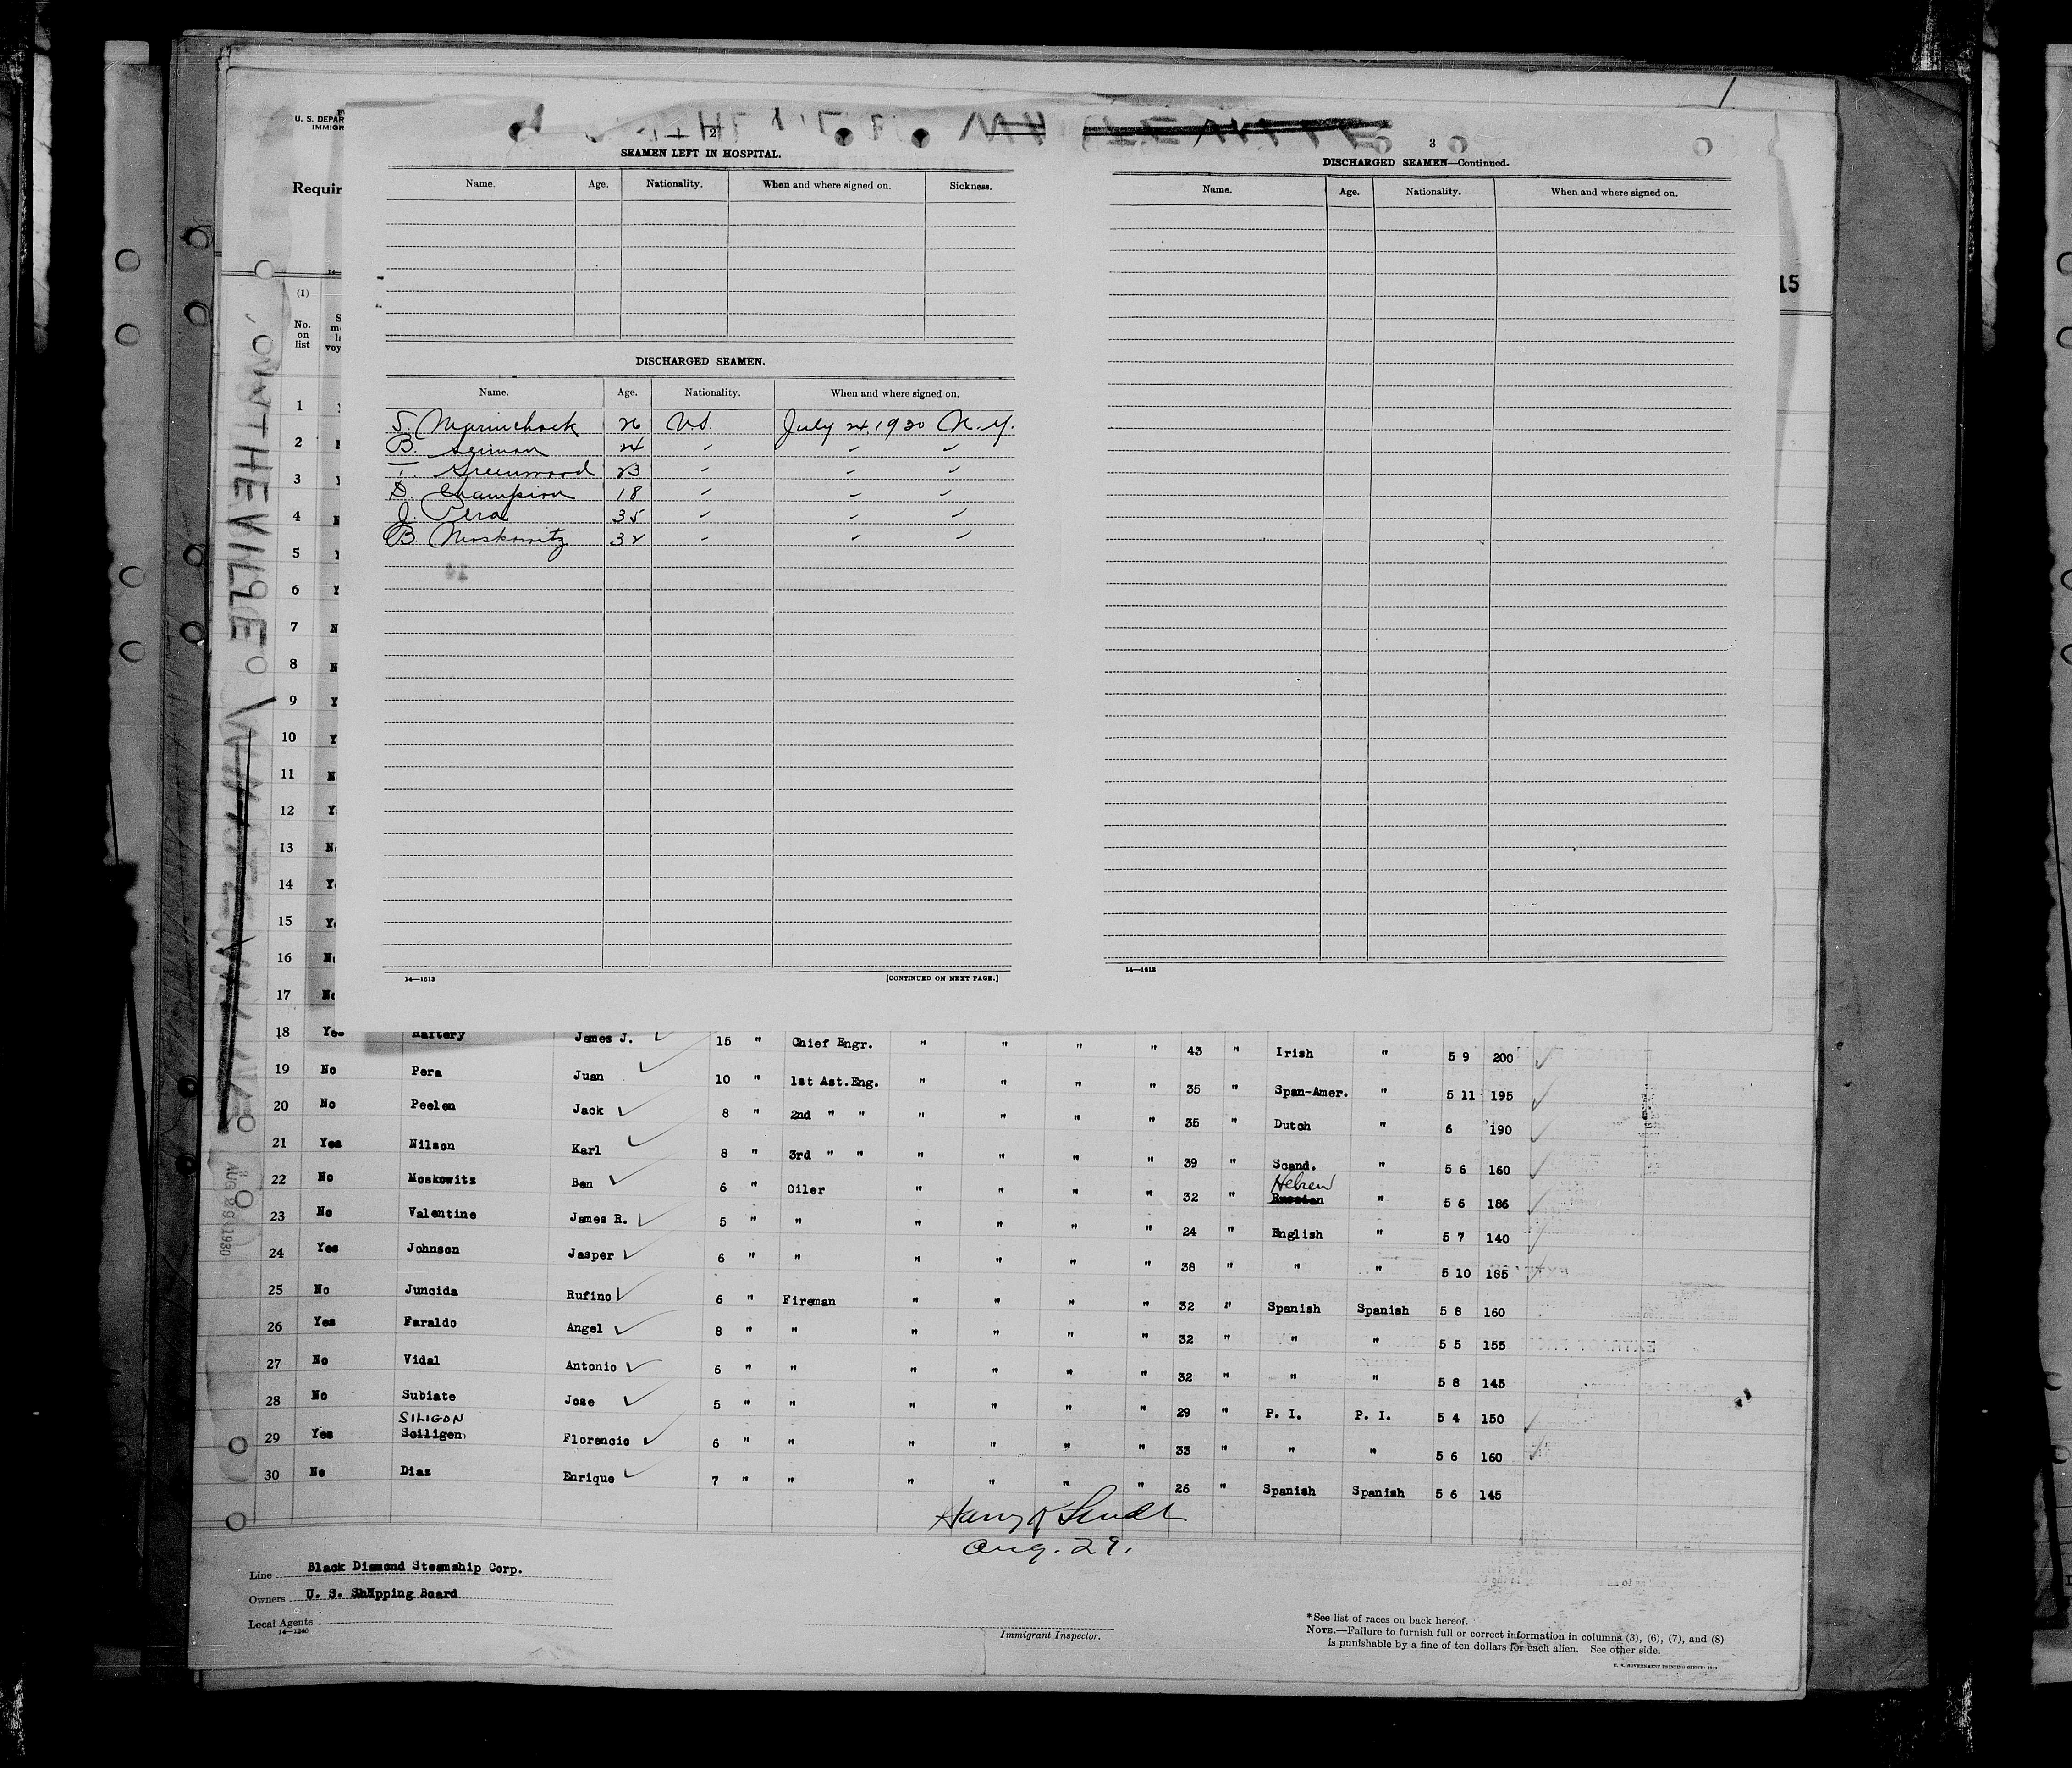 U. S. DEPAR
IMMIGR
Requir
15
(1)
No.
on
list
2
SEAMEN LEFT IN HOSPITAL.
Name. Age. Nationality. When and where signed on. Sickness.
DISCHARGED SEAMEN.
Name. Age. Nationality. When and where signed on.
S. Marinchock 26 U.S. July 24, 1930 N.Y.
B. 24 " " "
T. Greenwood 23 " " "
D. Champion 18 " " "
J. Pera 35 " " "
B. Moskowitz 32 " " "
14—1613 [CONTINUED ON NEXT PAGE.]
3
DISCHARGED SEAMEN—Continued.
Name. Age. Nationality. When and where signed on.
14—1613
1
2
3
4
5
6
7
8
9
10
11
12
13
14
15
16
17
18 Yes Raftery James J. 15 " Chief Engr. " " " " 43 " Irish " 5 9 200
19 No Pera Juan 10 " 1st Ast.Eng. " " " " 35 " Span-Amer. " 5 11 195
20 No Peelen Jack 8 " 2nd " " " " " " 35 " Dutch " 6 190
21 Yes Nilson Karl 8 " 3rd " " " " " " 39 " Scand. " 5 6 160
Hebrew
22 No Moskowitz Ben 6 " Oiler " " " " 32 " Russian " 5 6 186
23 No Valentine James R. 5 " " " " " " 24 " English " 5 7 140
24 Yes Johnson Jasper 6 " " " " " " 38 " " " 5 10 185
25 No Juncida Rufino 6 " Fireman " " " " 32 " Spanish Spanish 5 8 160
26 Yes Faraldo Angel 8 " " " " " " 32 " " " 5 5 155
27 No Vidal Antonio 6 " " " " " " 32 " " " 5 8 145
28 No Subiate Jose 5 " " " " " " 29 " P. I. P. I. 5 4 150
SILIGON
29 Yes Sciligen Florencio 6 " " " " " " 33 " " " 5 6 160
30 No Diaz Enrique 7 " " " " " " 26 " Spanish Spanish 5 6 145
Aug. 29.
Line Black Diamond Steamship Corp.
Owners U. S. Shipping Board
Local Agents
14—1240
Immigrant Inspector.
* See list of races on back hereof.
NOTE.—Failure to furnish full or correct information in columns (3), (6), (7), and (8)
is punishable by a fine of ten dollars for each alien. See other side.
AUG 29 1930